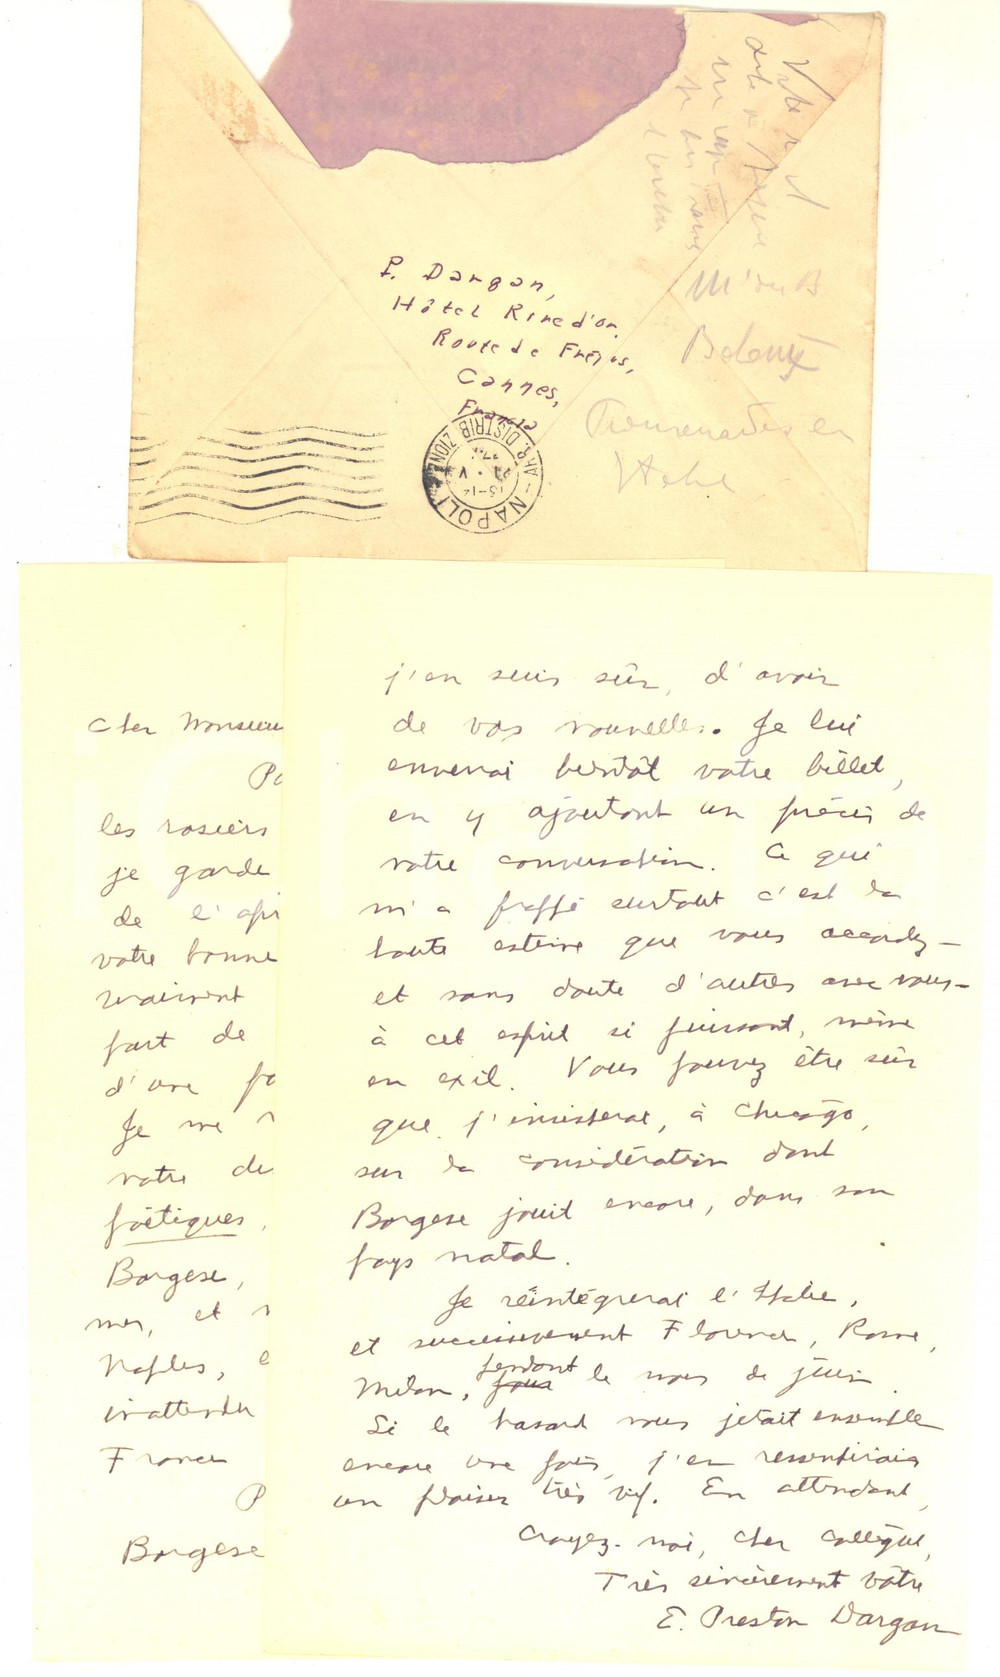 P. Dargan,
Hôtel Rive d'or,
Route de Fréjus,
Cannes,
France
NAPOLI
AR. DISTRIBUZIONE
M'
Promenades en
Italie
Cher Monsieur
les rosiers
je garde
de l'apr
votre bonne
vraiment
part de
d'une po
Je me r
votre de
poétiques,
Borgese,
mer, et
Naples, e
inattendu
France
P
Borgese
j'en suis sûr, d'avoir
de vos nouvelles. Je lui
enverrai bientôt votre billet,
en y ajoutant un précis de
votre conversation. Ce qui
m'a frappé surtout c'est la
haute estime que vous accordez—
et sans doute d'autres avec vous—
à cet esprit si puissant, même
en exil. Vous pouvez être sûr
que j'insisterai, à Chicago,
sur la considération dont
Borgese jouit encore, dans son
pays natal.
Je réintégrerai l'Italie,
et successivement Florence, Rome,
Milan, pendant le mois de juin.
Si le hasard nous jetait ensemble
encore une fois, j'en ressentirais
un plaisir très vif. En attendant,
croyez-moi, cher collègue,
Très sincèrement vôtre
E. Preston Dargan